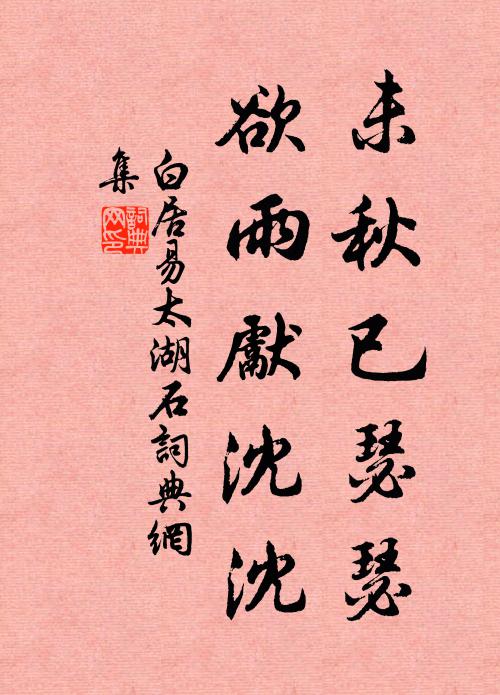 未秋已瑟瑟
欲雨獻沈沈
白居易太湖石詞典網
集
詞典網印